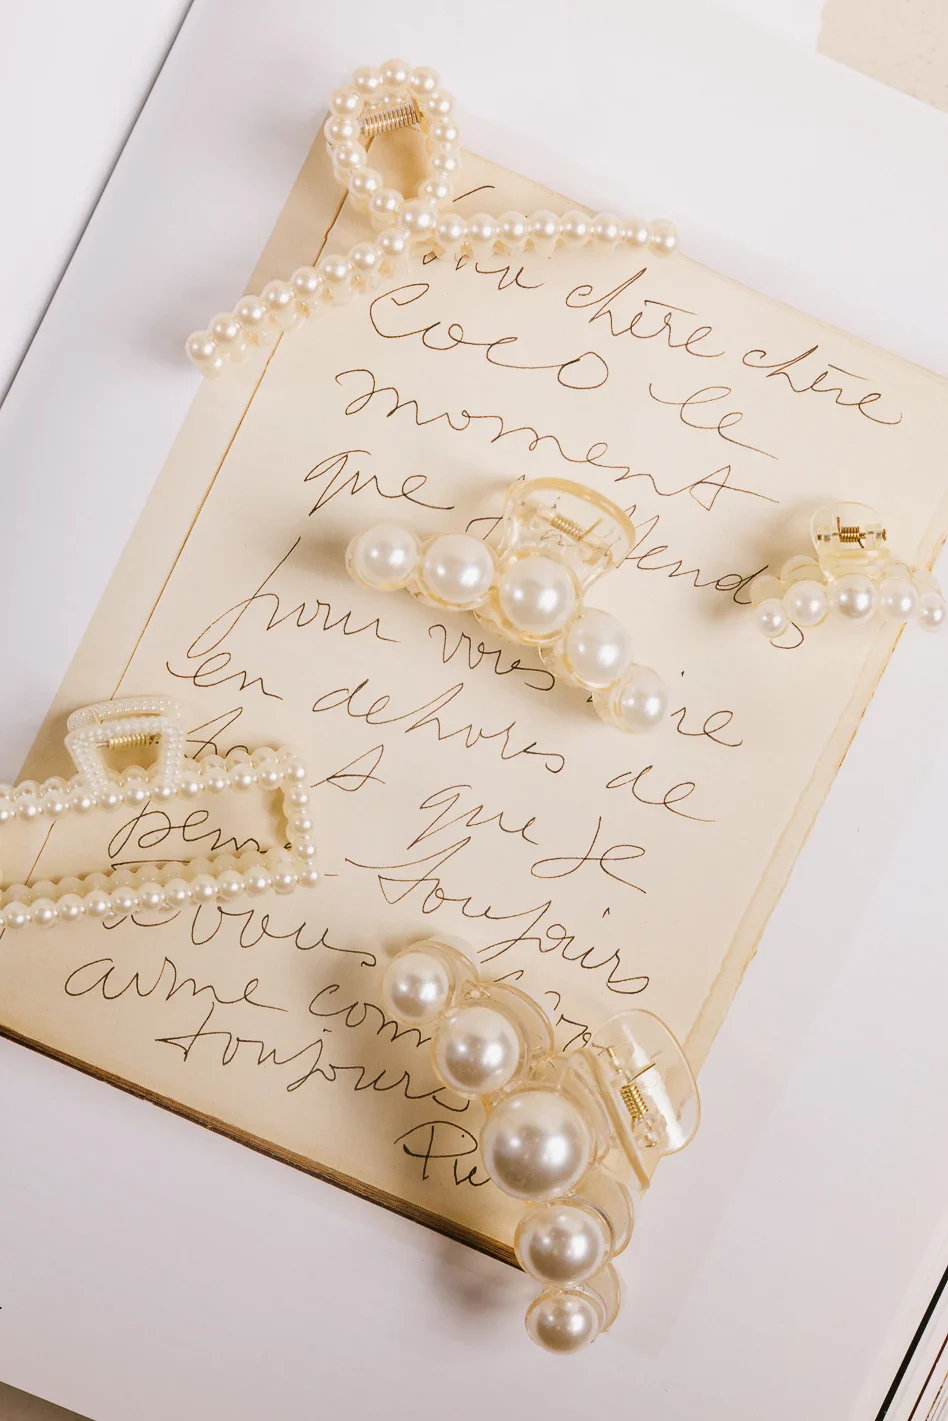 chère chère
Coco le
moment
que
pour vous
en dehors de
que je
toujours
vous
aime
toujours